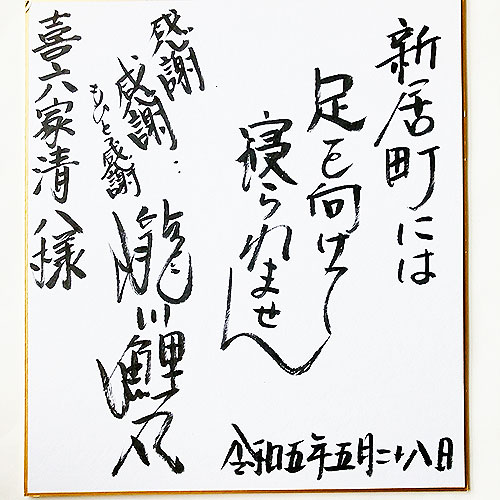 新居町には
足を向けて
寝られません
令和五年五月二十八日
感謝
感謝‥
もひとつ感謝
瀧川鯉白
喜六家清八様